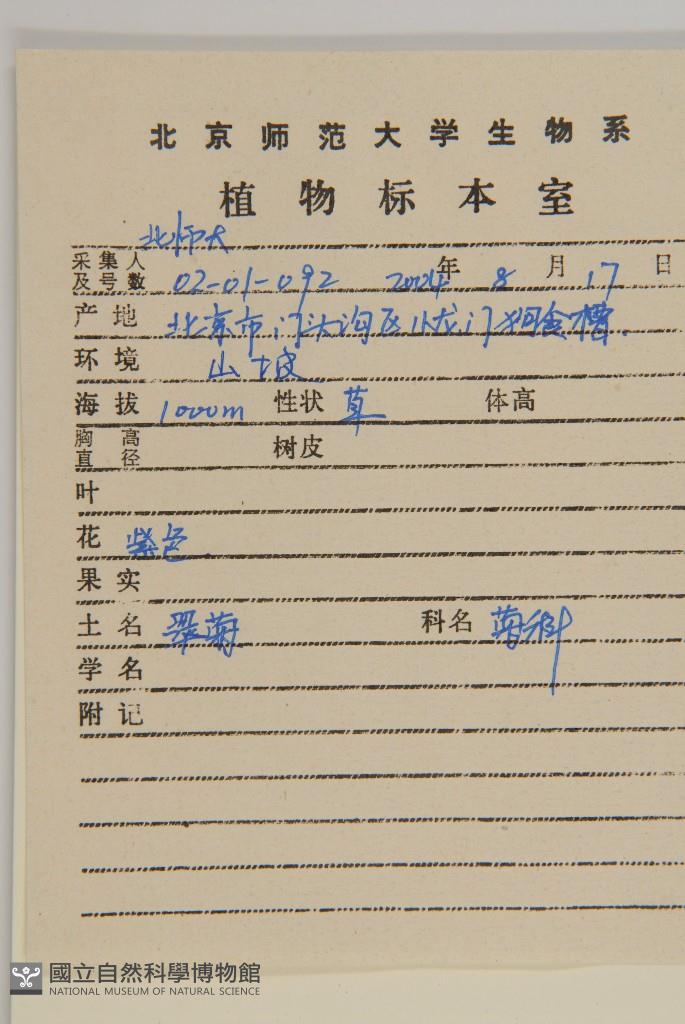 北京师范大学生物系
植物标本室
北师大
采集人及号数 02-01-092 2004年 8月 17日
产地 北京市门头沟区小龙门狗食槽.
环境 山坡
海拔 1000m 性状 草 体高
胸高直径 树皮
叶
花 紫色
果实
土名 翠菊 科名 菊科
学名
附记
國立自然科學博物館
NATIONAL MUSEUM OF NATURAL SCIENCE